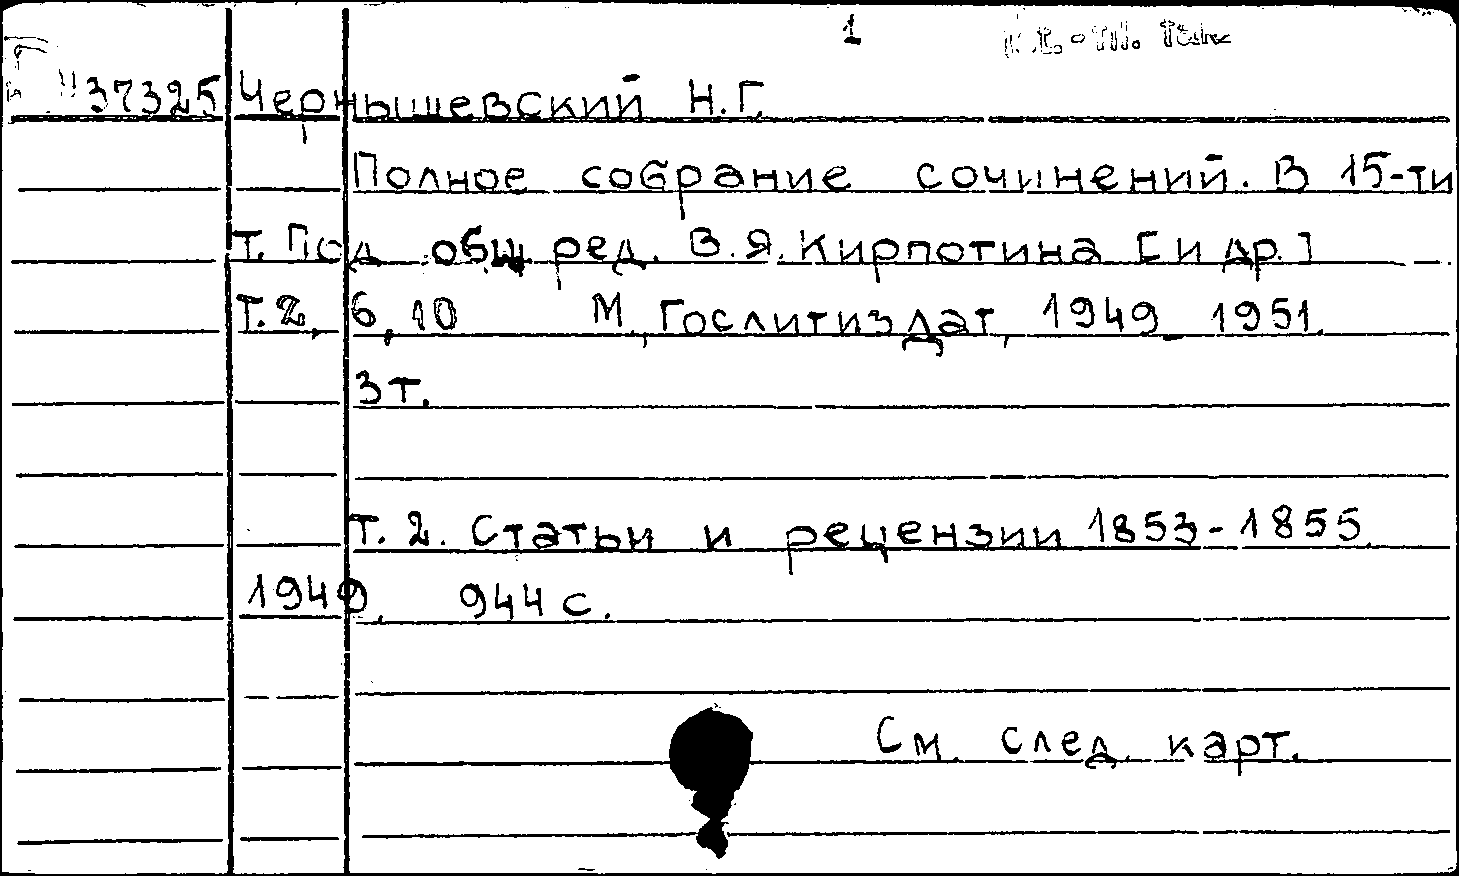 1
37325 Чернышевский Н.Г.
Полное собрание сочинений. В 15-ти
т. Под общ. ред. В.Я.Кирпотина [и др.]
Т. 2, 6, 10 М., Гослитиздат, 1949_1951.
3 т.
Т. 2. Статьи и рецензии 1853-1855.
1949. 944 с.
См. след. карт.